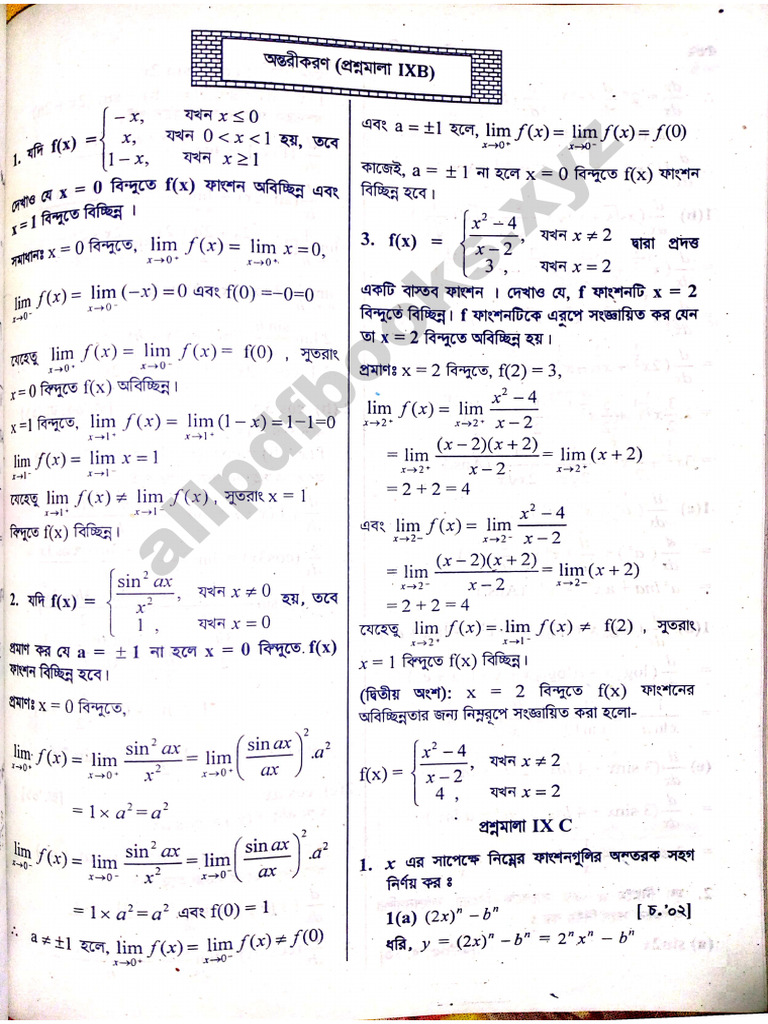 অন্তরীকরণ (প্রশ্নমালা IXB)
1. যদি f(x) = { − x, যখন x ≤ 0
x, যখন 0 < x < 1 হয়, তবে
1 − x, যখন x ≥ 1
দেখাও যে x = 0 বিন্দুতে f(x) ফাংশন অবিচ্ছিন্ন এবং
x = 1 বিন্দুতে বিচ্ছিন্ন ।
সমাধানঃ x = 0 বিন্দুতে, lim x→0⁺ f(x) = lim x→0⁺ x = 0,
lim x→0⁻ f(x) = lim x→0⁻ (−x) = 0 এবং f(0) =−0=0
যেহেতু lim x→0⁺ f(x) = lim x→0⁻ f(x) = f(0) , সুতরাং
x = 0 বিন্দুতে f(x) অবিচ্ছিন্ন।
x =1 বিন্দুতে, lim x→1⁺ f(x) = lim x→1⁺ (1 − x) = 1−1=0
lim x→1⁻ f(x) = lim x→1⁻ x = 1
যেহেতু lim x→1⁺ f(x) ≠ lim x→1⁻ f(x) , সুতরাং x = 1
বিন্দুতে f(x) বিচ্ছিন্ন।
2. যদি f(x) = { sin² ax / x² , যখন x ≠ 0 হয়, তবে
1 , যখন x = 0
প্রমাণ কর যে a = ± 1 না হলে x = 0 বিন্দুতে f(x)
ফাংশন বিচ্ছিন্ন হবে।
প্রমাণঃ x = 0 বিন্দুতে,
lim x→0⁺ f(x) = lim x→0⁺ sin² ax / x² = lim x→0⁺ (sin ax / ax)² .a²
= 1 × a² = a²
lim x→0⁻ f(x) = lim x→0⁻ sin² ax / x² = lim x→0⁻ (sin ax / ax)² .a²
= 1 × a² = a² এবং f(0) = 1
∴ a ≠ ±1 হলে, lim x→0⁺ f(x) = lim x→0⁻ f(x) ≠ f(0)
এবং a = ±1 হলে, lim x→0⁺ f(x) = lim x→0⁻ f(x) = f(0)
কাজেই, a = ± 1 না হলে x = 0 বিন্দুতে f(x) ফাংশন
বিচ্ছিন্ন হবে।
3. f(x) = { x² − 4 / x − 2 , যখন x ≠ 2 দ্বারা প্রদত্ত
3 , যখন x = 2
একটি বাস্তব ফাংশন । দেখাও যে, f ফাংশনটি x = 2
বিন্দুতে বিচ্ছিন্ন। f ফাংশনটিকে এরূপে সংজ্ঞায়িত কর যেন
তা x = 2 বিন্দুতে অবিচ্ছিন্ন হয়।
প্রমাণঃ x = 2 বিন্দুতে, f(2) = 3,
lim x→2⁺ f(x) = lim x→2⁺ x² − 4 / x − 2
= lim x→2⁺ (x − 2)(x + 2) / x − 2 = lim x→2⁺ (x + 2)
= 2 + 2 = 4
এবং lim x→2− f(x) = lim x→2− x² − 4 / x − 2
= lim x→2⁻ (x − 2)(x + 2) / x − 2 = lim x→2− (x + 2)
= 2 + 2 = 4
যেহেতু lim x→2⁺ f(x) = lim x→1⁻ f(x) ≠ f(2) , সুতরাং
x = 1 বিন্দুতে f(x) বিচ্ছিন্ন।
(দ্বিতীয় অংশ): x = 2 বিন্দুতে f(x) ফাংশনের
অবিচ্ছিন্নতার জন্য নিম্নরূপে সংজ্ঞায়িত করা হলো-
f(x) = { x² − 4 / x − 2 , যখন x ≠ 2
4 , যখন x = 2
প্রশ্নমালা IX C
1. x এর সাপেক্ষে নিম্নের ফাংশনগুলির অন্তরক সহগ
নির্ণয় কর ঃ
1(a) (2x)ⁿ − bⁿ [ চ.'০২]
ধরি, y = (2x)ⁿ − bⁿ = 2ⁿ xⁿ − bⁿ
allpdfbooks.xyz